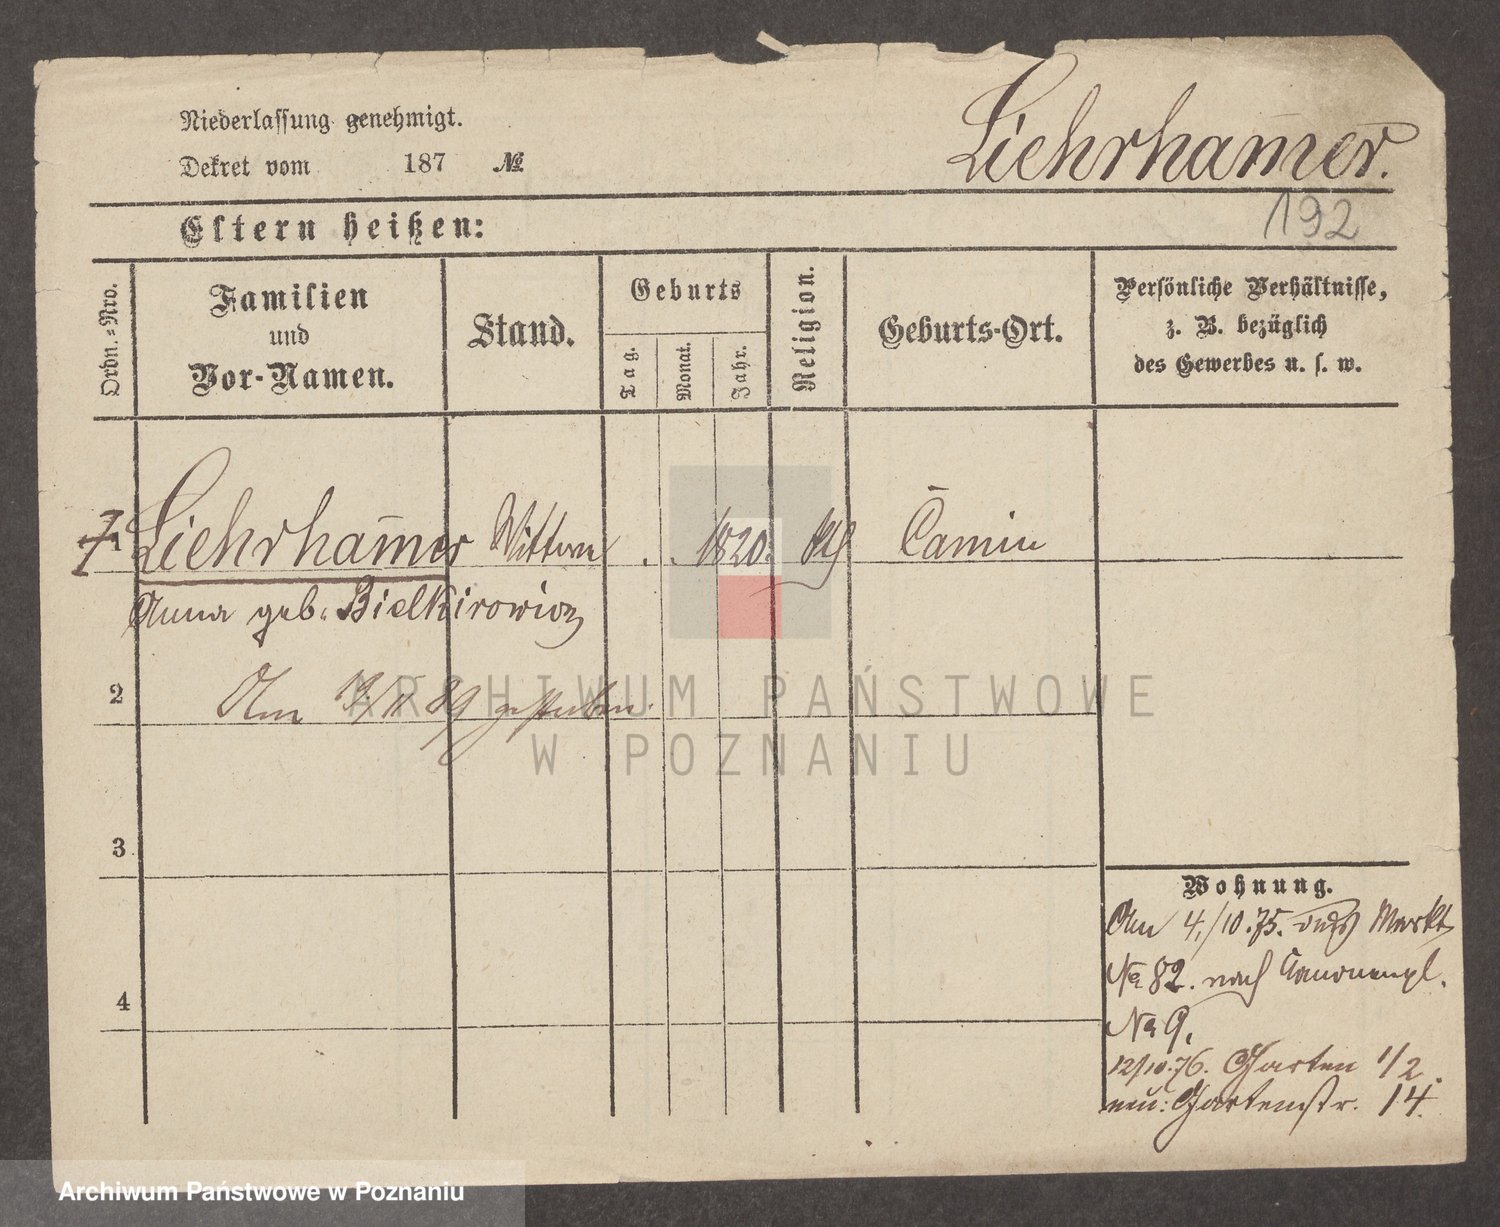 Niederlassung genehmigt.
Dekret vom 187 №
Liehrham̄er.
192
Eltern heißen:
Ordn.-Nro.
Familien
und
Vor-Namen.
Stand.
Geburts
Tag.
Monat.
Jahr.
Religion.
Geburts-Ort.
Persönliche Verhältnisse,
z. B. bezüglich
des Gewerbes u. s. w.
1 Liehrham̄er Wittwe . . 1820. kth Camin
Anna geb. Bielkirowicz
2
Am 19/11 89 gestorben.
3
4
Wohnung.
Am 4./10.75. aus Markt
No 82. nach Canonenpl.
No 9.
12/10.76. Garten 1/2.
neu: Gartenstr. 14.
ARCHIWUM PAŃSTWOWE
W POZNANIU
Archiwum Państwowe w Poznaniu